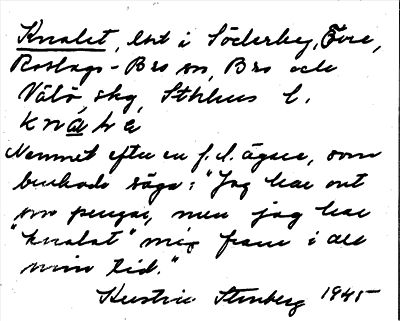 Knalet, lht i Söderby, Tve,
Roslags-Bro sn, Bro och
Välö skg, Sthlms l.
knalə
Namnet efter en f.d. ägare, som
brukade säga: "Jag har ont
om pengar, men jag har
"knalat" mig fram i all
min tid."
Kerstin Stenberg 1945